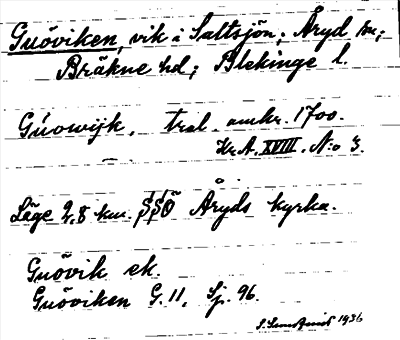 Guöviken, vik i Saltsjön; Åryd sn;
Bräkne hd; Blekinge l.
Gúowijk. tral. omkr. 1700.
Kr.A. XVIII. N:o 3.
Läge 2,8 km. SSÖ Åryds kyrka.
Guövik ek.
Guöviken G. 11, Sj. 96.
1936